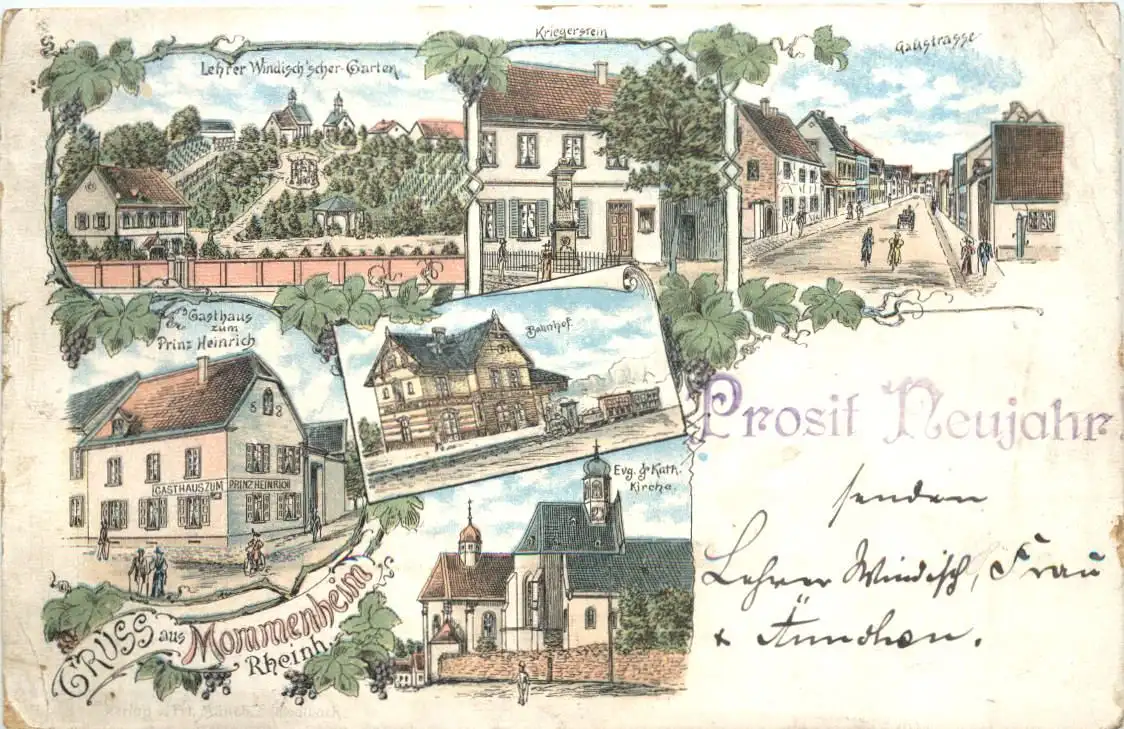 Kriegerstein
Lehrer Windisch'scher-Garten
Gaustrasse
Gasthaus
zum
Prinz Heinrich
58
GASTHAUS ZUM PRINZ HEINRICH
Bahnhof.
Evg. & Kath.
Kirche.
Prosit Neujahr
senden
Lehrer Windisch, Frau
& Ännchen.
GRUSS aus Mommenheim
Rheinh.
Verlag v.